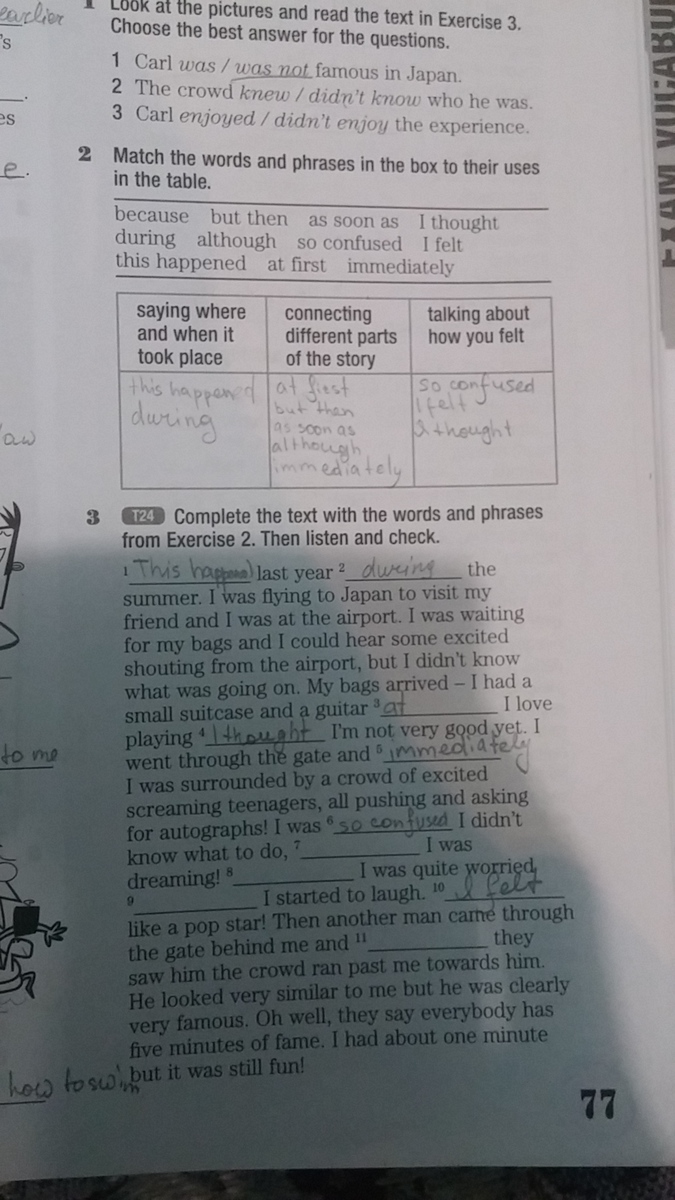 earlier
's
es
e.
1 Look at the pictures and read the text in Exercise 3.
Choose the best answer for the questions.
1 Carl was / was not famous in Japan.
2 The crowd knew / didn't know who he was.
3 Carl enjoyed / didn't enjoy the experience.
2 Match the words and phrases in the box to their uses
in the table.
because but then as soon as I thought
during although so confused I felt
this happened at first immediately
saying where
and when it
took place
connecting
different parts
of the story
talking about
how you felt
this happened
during
at fiest
but then
as soon as
although
immediately
so confused
I felt
I thought
3 T24 Complete the text with the words and phrases
from Exercise 2. Then listen and check.
1 This happened last year 2 during the
summer. I was flying to Japan to visit my
friend and I was at the airport. I was waiting
for my bags and I could hear some excited
shouting from the airport, but I didn't know
what was going on. My bags arrived – I had a
small suitcase and a guitar 3 at I love
playing 4 I thought I'm not very good yet. I
went through the gate and 5 immediately
I was surrounded by a crowd of excited
screaming teenagers, all pushing and asking
for autographs! I was 6 so confused I didn't
know what to do, 7 I was
dreaming! 8 I was quite worried,
9 I started to laugh. 10 I felt
like a pop star! Then another man came through
the gate behind me and 11 they
saw him the crowd ran past me towards him.
He looked very similar to me but he was clearly
very famous. Oh well, they say everybody has
five minutes of fame. I had about one minute
but it was still fun!
to me
how to swim
77
EXAM VOCABU